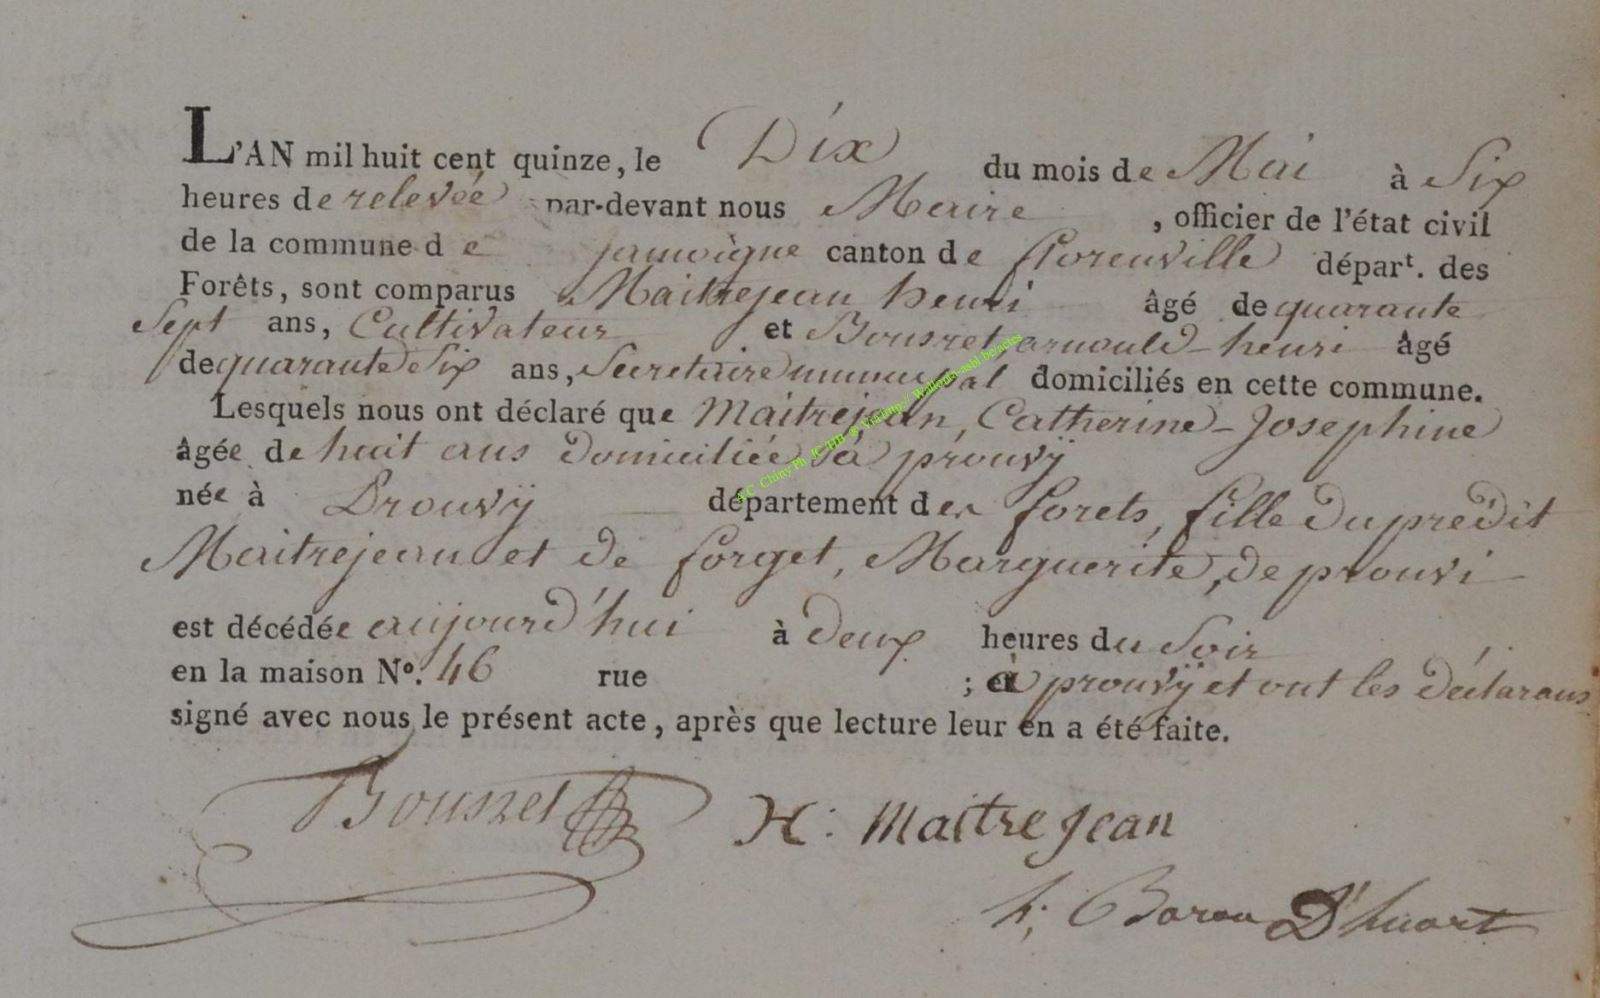 L'AN mil huit cent quinze, le Dix du mois de Mai à Six
heures de relevée par-devant nous Maire, officier de l'état civil
de la commune de jamoigne canton de florenville départ. des
Forêts, sont comparus Maitrejean henri âgé de quarante
Sept ans, Cultivateur et Bousret arnould-henri âgé
de quarante Six ans, Secretaire municipal domiciliés en cette commune.
Lesquels nous ont déclaré que Maitrejean, Catherine-Josephine
âgée de huit ans domiciliée à prouvÿ
née à Prouvÿ département des forets, fille du prédit
Maitrejean et de forget, Marguerite, de prouvi
est décédée aujourd'hui à deux heures du Soir
en la maison No. 46 rue ; à prouvÿ et ont les déclarans
signé avec nous le présent acte, après que lecture leur en a été faite.
Bousret H: Maitrejean
h; Baron D'huart